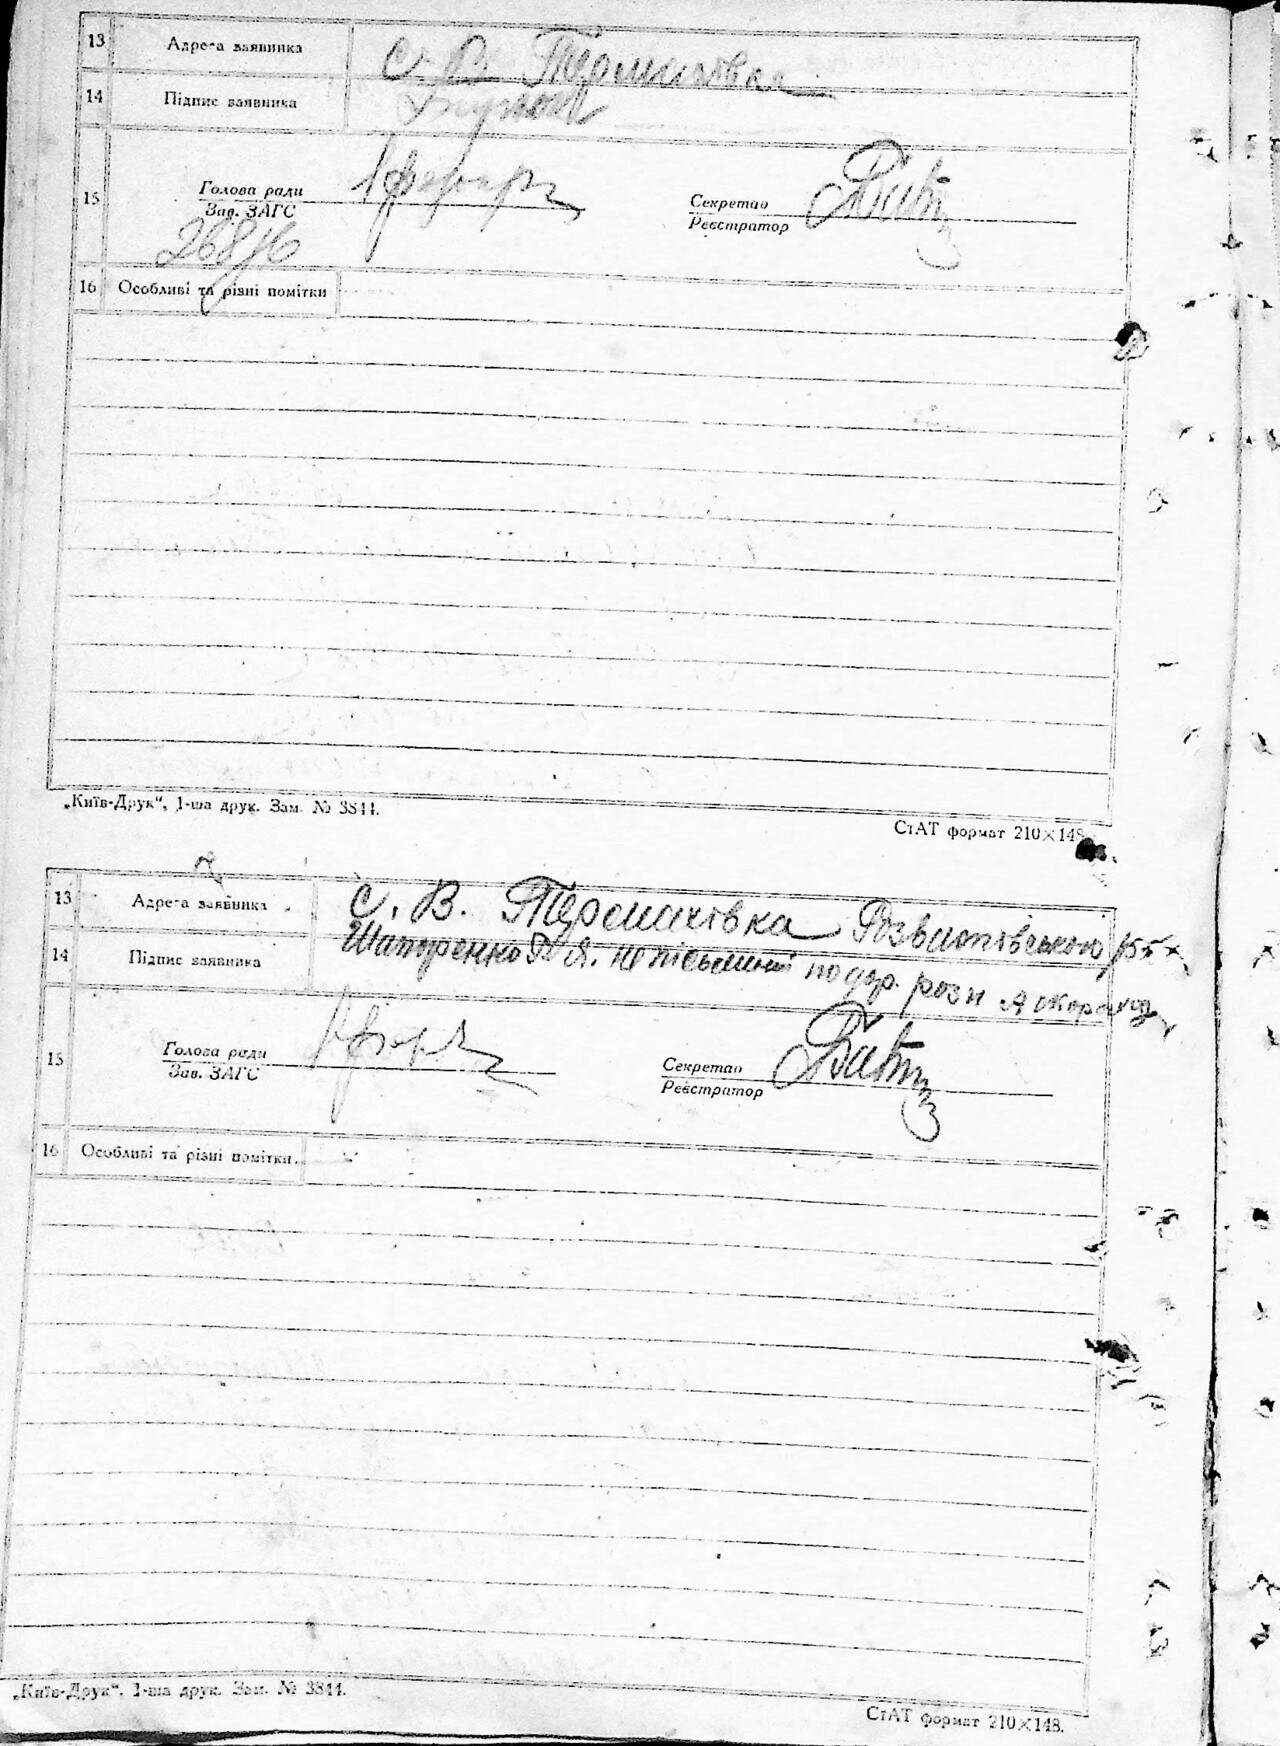 13 Адреса заявника С. В. Термахівка
14 Підпис заявника
15 Голова ради Секретар
Зав. ЗАГС Реєстратор
268
16 Особливі та різні помітки
„Київ-Друк“, 1-ша друк. Зам. № 3844.
СтАТ формат 210×148.
13 Адреса заявника С. В. Термахівка Розважівського
14 Підпис заявника Шапуренко Я. неписьмений по
15 Голова ради Секретар
Зав. ЗАГС Реєстратор
16 Особливі та різні помітки.
„Київ-Друк“. 1-ша друк. Зам. № 3844.
СтАТ формат 210×148.